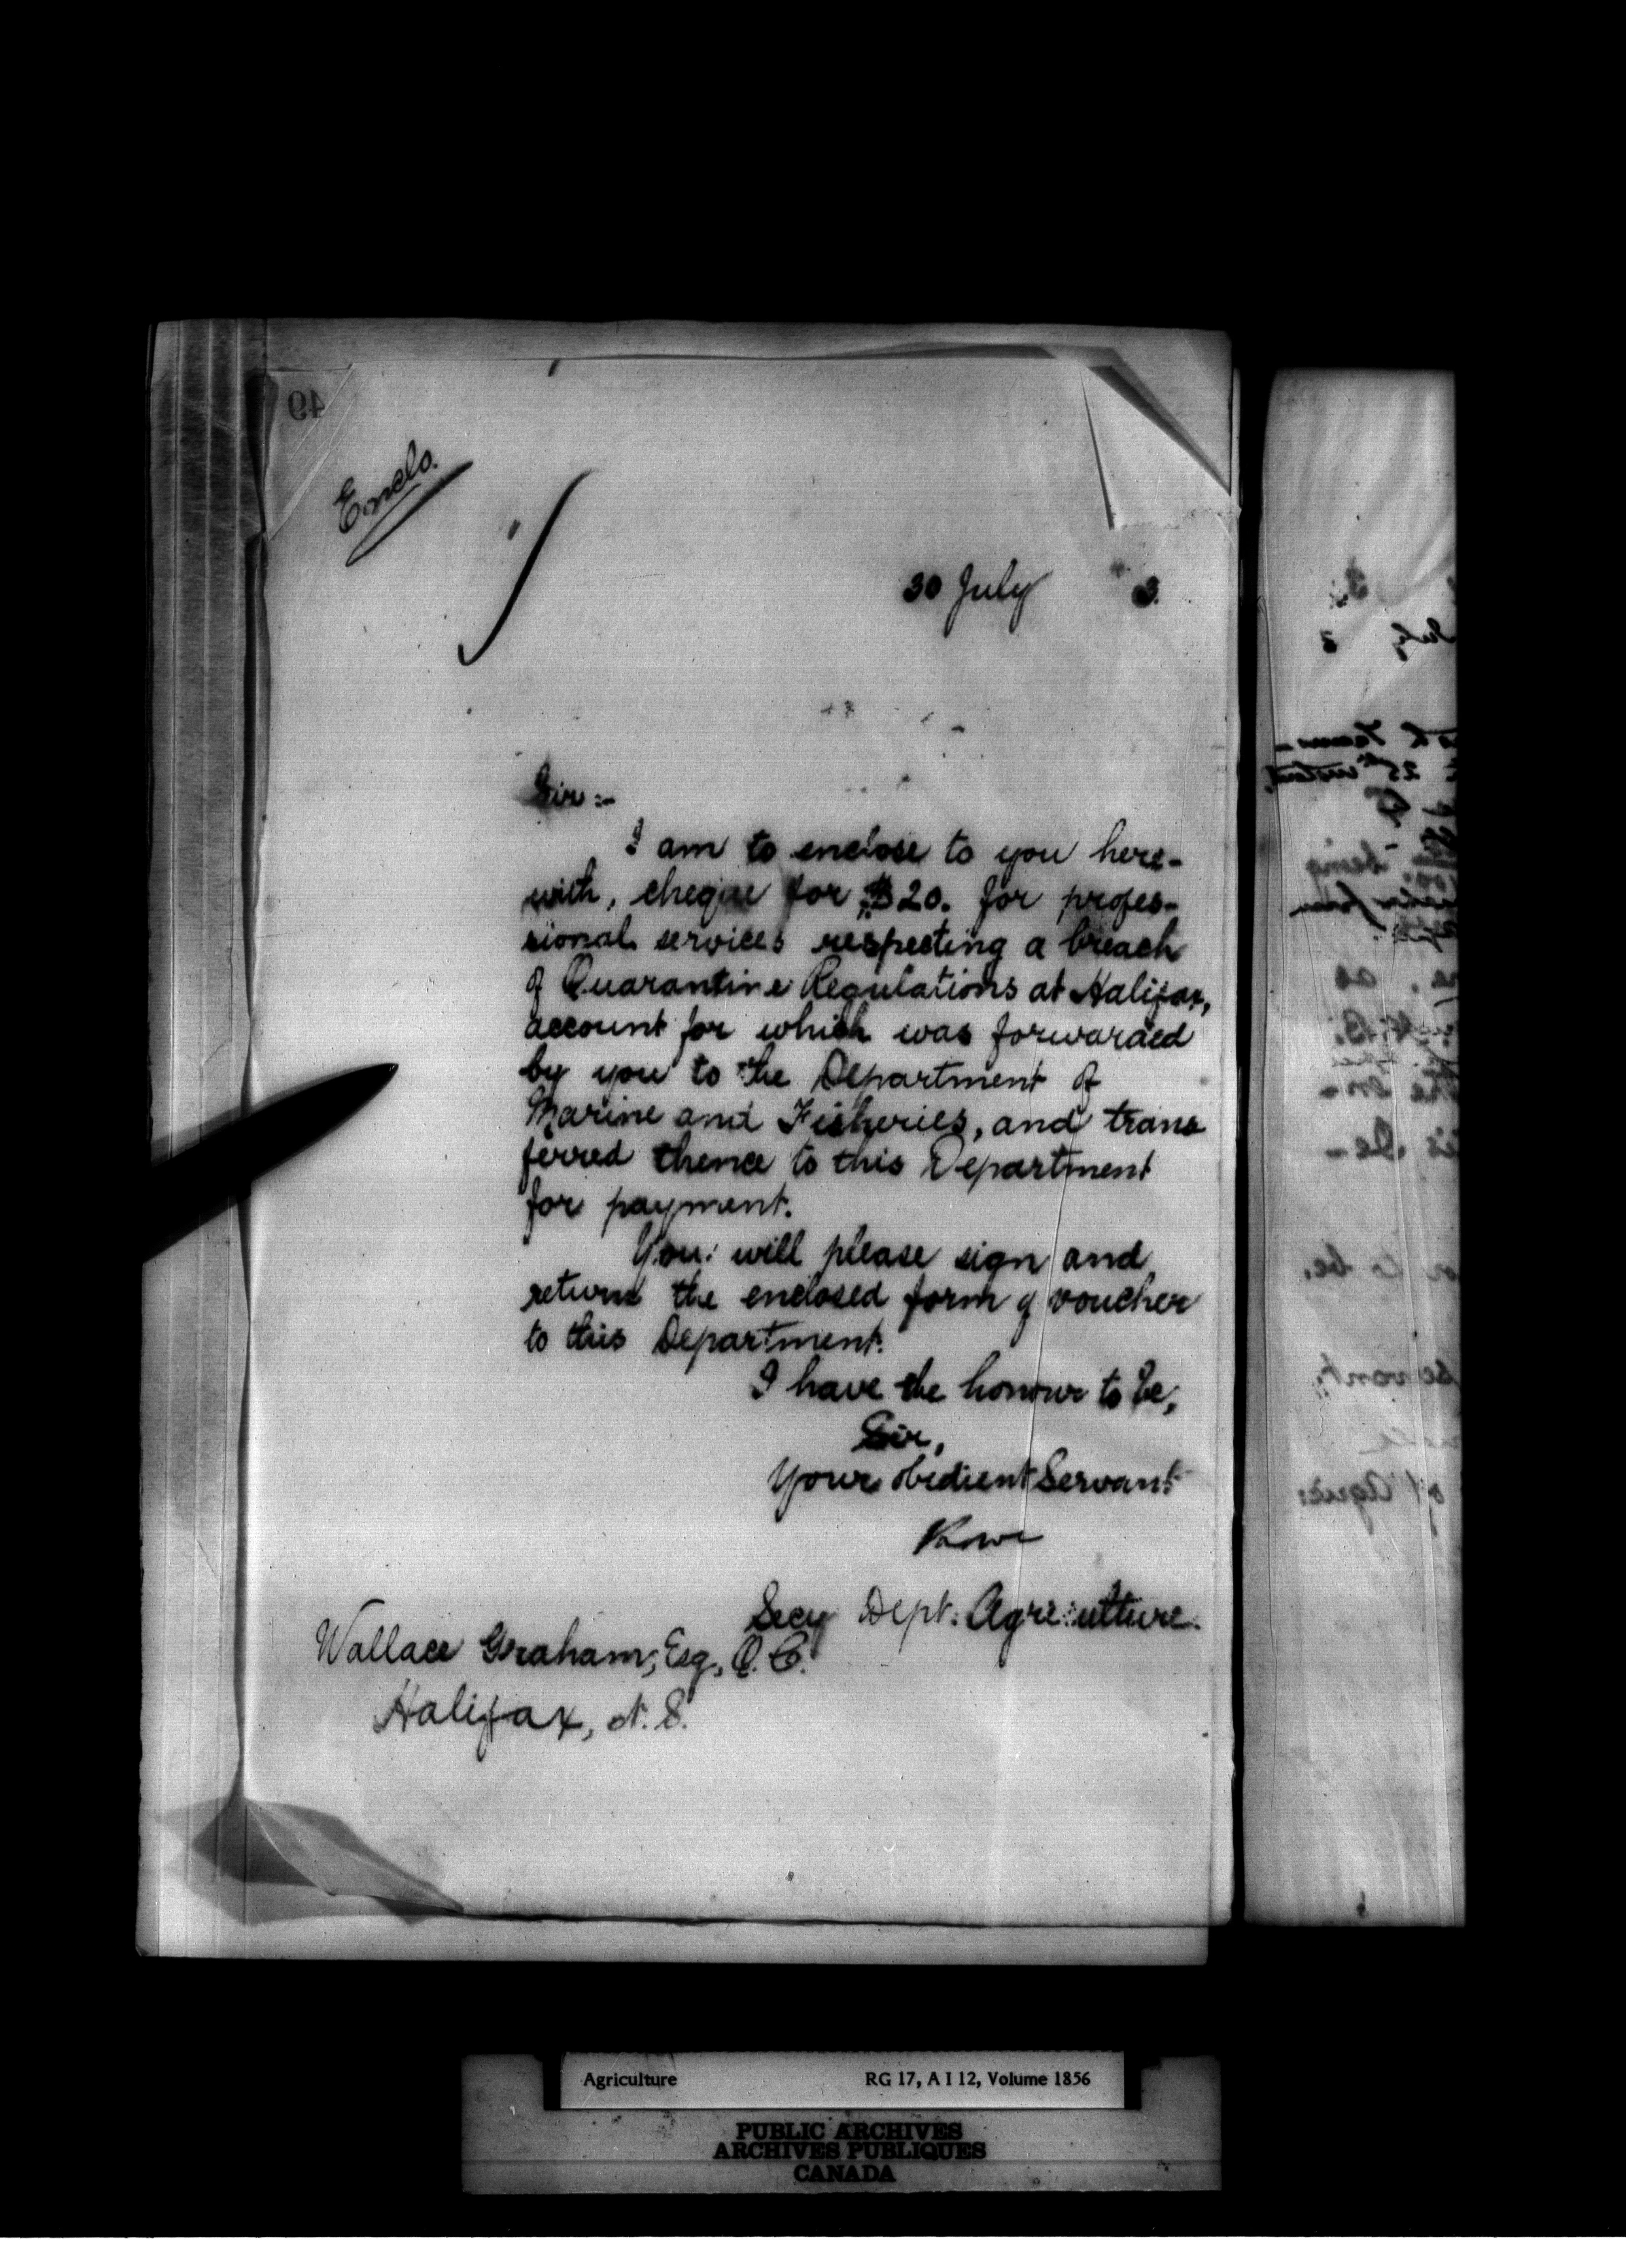 49
Enclo.
30 July 3.
Sir:-
I am to enclose to you here-
with, cheque for $20. for profes-
sional services respecting a breach
of Quarantine Regulations at Halifax,
account for which was forwarded
by you to the Department of
Marine and Fisheries, and trans
ferred thence to this Department
for payment.
You will please sign and
return the enclosed form of voucher
to this Department.
I have the honour to be,
Sir,
Your obedient Servant
Secy Dept. Agriculture.
Wallace Graham, Esq., Q.C.
Halifax, N.S.
July 3
25th instant,
being
as
to be,
servant,
of Agric:
Agriculture RG 17, A I 12, Volume 1856
PUBLIC ARCHIVES
ARCHIVES PUBLIQUES
CANADA